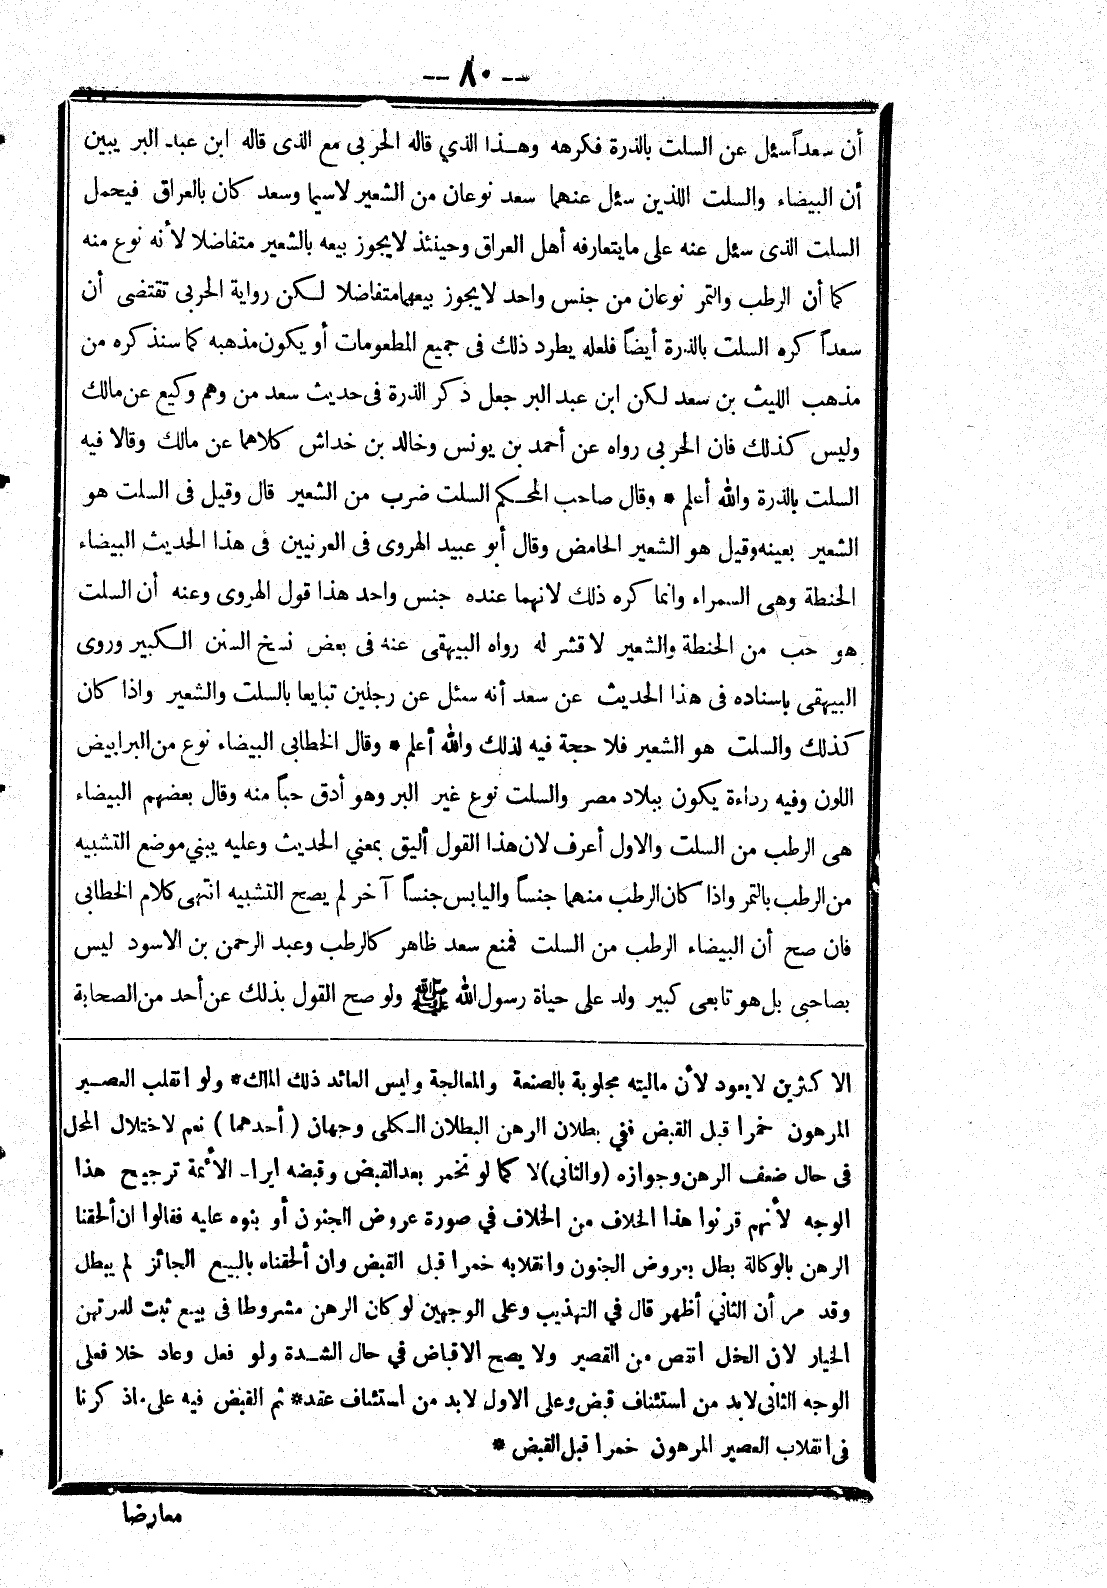 -- ٨٠ --
أن سعداً سئل عن السلت بالذرة فكرهه وهذا الذي قاله الحربى مع الذى قاله ابن عبد البر يبين
أن البيضاء والسلت اللذين سئل عنهما سعد نوعان من الشعير لاسيما وسعد كان بالعراق فيحمل
السلت الذى سئل عنه على مايتعارفه أهل العراق وحينئذ لايجوز بيعه بالشعير متفاضلا لأنه نوع منه
كما أن الرطب والتمر نوعان من جنس واحد لايجوز بيعهمامتفاضلا لكن رواية الحربى تقتضى أن
سعداً كره السلت بالذرة أيضاً فلعله يطرد ذلك فى جميع المطعومات أو يكون مذهبه كما سنذكره من
مذهب الليث بن سعد لكن ابن عبد البر جعل ذكر الذرة فى حديث سعد من وهم وكيع عن مالك
وليس كذلك فان الحربى رواه عن أحمد بن يونس وخالد بن خداش كلاهما عن مالك وقالا فيه
السلت بالذرة والله أعلم * وقال صاحب المحكم السلت ضرب من الشعير قال وقيل فى السلت هو
الشعير بعينه وقيل هو الشعير الحامض وقال أبو عبيد الهروى فى الغرنيين فى هذا الحديث البيضاء
الحنطة وهى السمراء وانما كره ذلك لانهما عنده جنس واحد هذا قول الهروى وعنه أن السلت
هو حب من الحنطة والشعير لا قشر له رواه البيهقى عنه فى بعض نسخ السنن الكبير وروى
البيهقى باسناده فى هذا الحديث عن سعد أنه سئل عن رجلين تبايعا بالسلت والشعير واذا كان
كذلك والسلت هو الشعير فلا حجة فيه لذلك والله أعلم * وقال الخطابى البيضاء نوع من البر ابيض
اللون وفيه رداءة يكون ببلاد مصر والسلت نوع غير البر وهو أدق حباً منه وقال بعضهم البيضاء
هى الرطب من السلت والاول أعرف لان هذا القول أليق بمعني الحديث وعليه يبني موضع التشبيه
من الرطب بالتمر واذا كان الرطب منهما جنساً واليابس جنساً آخر لم يصح التشبيه انتهى كلام الخطابى
فان صح أن البيضاء الرطب من السلت فمنع سعد ظاهر كالرطب وعبد الرحمن بن الاسود ليس
بصاحبى بل هو تابعى كبير ولد على حياة رسول الله ﷺ ولو صح القول بذلك عن أحد من الصحابة
الاكثرين لايعود لأن ماليته مجلوبة بالصنعة والمعالجة وليس العائد ذلك المالك* ولو انقلب العصير
المرهون خمرا قبل القبض ففي بطلان الرهن البطلان الكلى وجهان ( أحدهما ) نعم لاختلال المحل
فى حال ضعف الرهن وجوازه (والثانى) لا كما لو تخمر بعد القبض وقبضه ايراد الأئمة ترجيح هذا
الوجه لأنهم قرنوا هذا الخلاف من الخلاف في صورة عروض الجنون أو بنوه عليه فقالوا ان ألحقنا
الرهن بالوكالة بطل بعروض الجنون وانقلابه خمرا قبل القبض وان ألحقناه بالبيع الجائز لم يبطل
وقد مر أن الثانى أظهر قال في التهذيب وعلى الوجهين لو كان الرهن مشروطا فى بيع ثبت للمرتهن
الخيار لان الخل انقص من القصير ولا يصح الاقباض في حال الشدة ولو فعل وعاد خلا فعلى
الوجه الثانى لابد من استئناف قبض وعلى الاول لابد من استئناف عقد* ثم القبض فيه على ماذ كرنا
فى انقلاب العصير المرهون خمرا قبل القبض *
معارضا